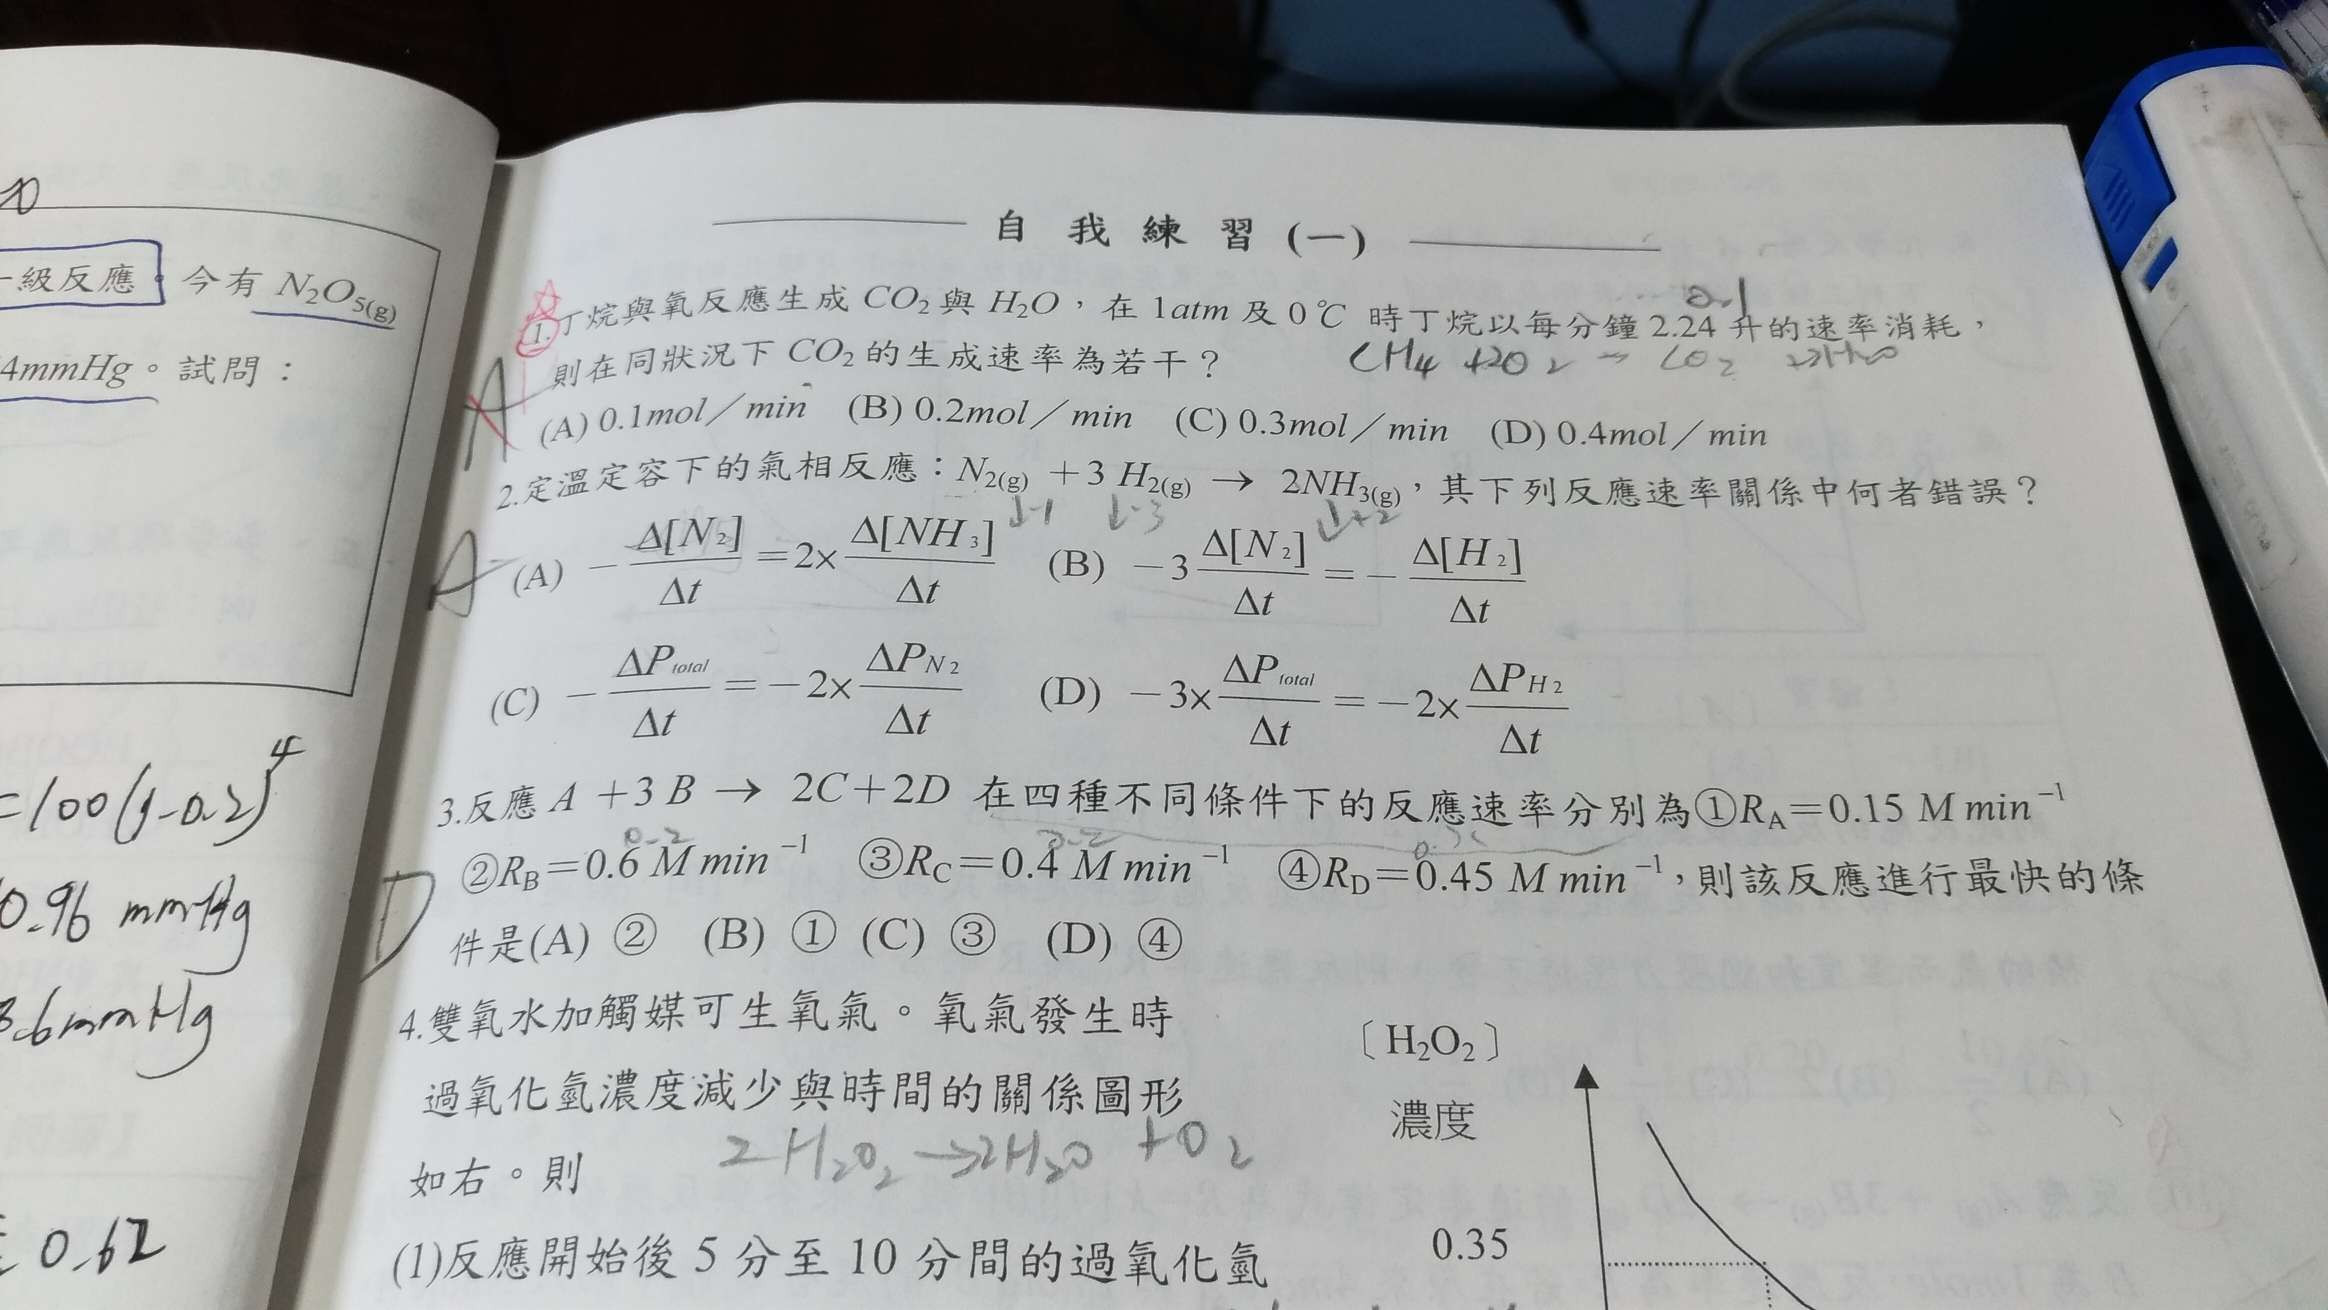 一級反應。今有 N₂O₅(g)
4mmHg。試問：
=100(1-0.2)⁴
0.96 mmHg
8.6mmHg
= 0.62
自我練習(一)
0.1
1.丁烷與氧反應生成 CO₂ 與 H₂O，在 1atm 及 0℃ 時丁烷以每分鐘 2.24 升的速率消耗，
則在同狀況下 CO₂ 的生成速率為若干？ CH₄ +2O₂ → CO₂ 2H₂O
A
(A) 0.1mol／min (B) 0.2mol／min (C) 0.3mol／min (D) 0.4mol／min
2.定溫定容下的氣相反應：N₂(g) ＋3 H₂(g) → 2NH₃(g)，其下列反應速率關係中何者錯誤？
↓-1 ↓-3 ↓+2
A (A) －Δ[N₂]/Δt ＝2×Δ[NH₃]/Δt (B) －3 Δ[N₂]/Δt ＝－Δ[H₂]/Δt
(C) －ΔP_total/Δt ＝－2×ΔP_N₂/Δt (D) －3×ΔP_total/Δt ＝－2×ΔP_H₂/Δt
3.反應 A ＋3 B → 2C＋2D 在四種不同條件下的反應速率分別為①R_A＝0.15 M min⁻¹
0.2 0.2
②R_B＝0.6 M min⁻¹ ③R_C＝0.4 M min⁻¹ ④R_D＝0.45 M min⁻¹，則該反應進行最快的條
D 件是(A) ② (B) ① (C) ③ (D) ④
4.雙氧水加觸媒可生氧氣。氧氣發生時
過氧化氫濃度減少與時間的關係圖形
2H₂O₂→2H₂O +O₂
如右。則
(1)反應開始後 5 分至 10 分間的過氧化氫
〔H₂O₂〕
濃度
0.35